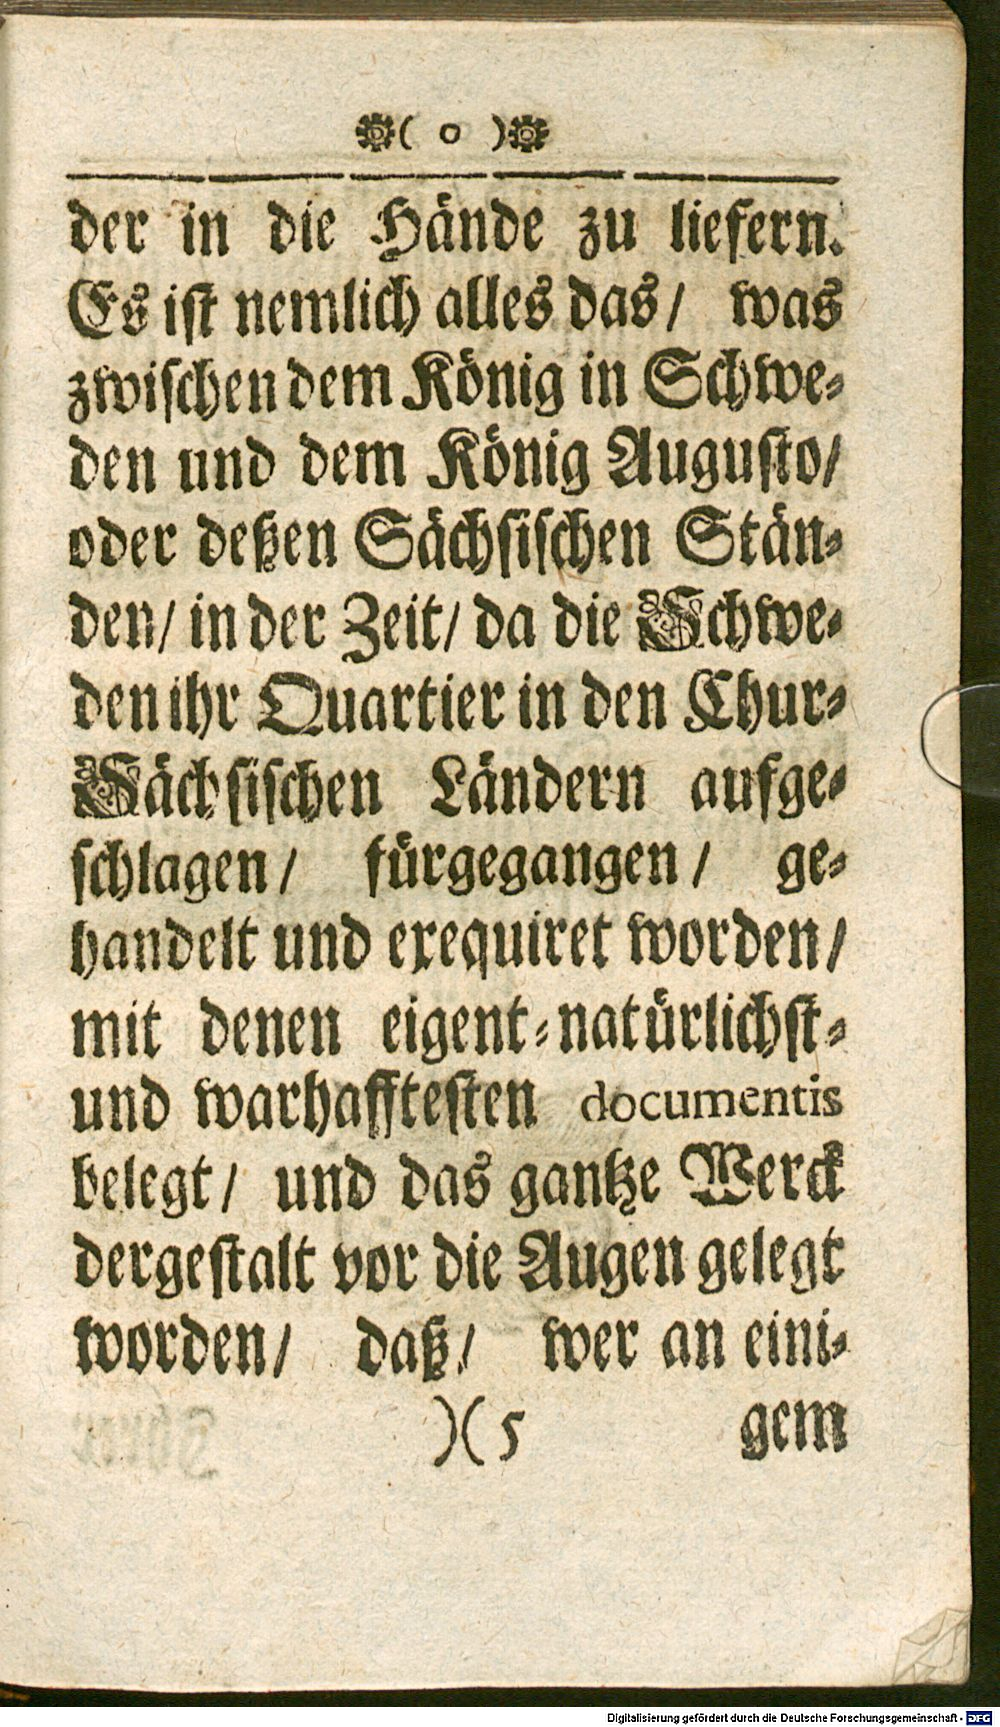 ( o )
der in die Hände zu liefern.
Es ist nemlich alles das/ was
zwischen dem König in Schwe-
den und dem König Augusto/
oder deßen Sächsischen Stän-
den/ in der Zeit/ da die Schwe-
den ihr Quartier in den Chur-
Sächsischen Ländern aufge-
schlagen/ fürgegangen/ ge-
handelt und exequiret worden/
mit denen eigent-natürlichst-
und warhafftesten documentis
belegt/ und das gantze Werck
dergestalt vor die Augen gelegt
worden/ daß/ wer an eini-
)( 5 gem
Digitalisierung gefördert durch die Deutsche Forschungsgemeinschaft - DFG